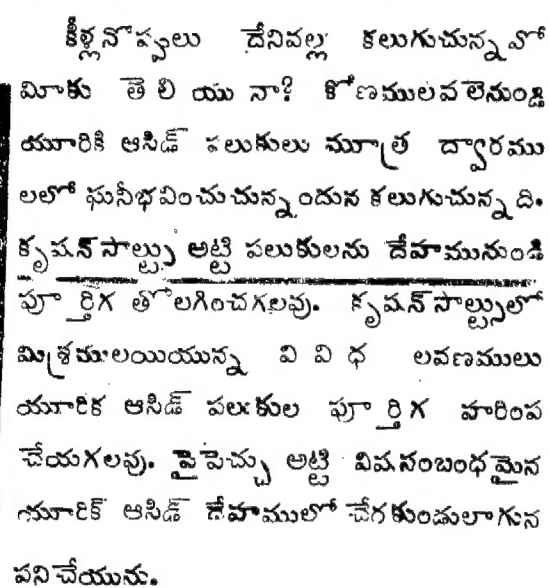 కీళ్లనొప్పులు దేనివల్ల కలుగుచున్నవో
మీకు తెలియునా? కోణములవలెనుండి
యూరికి ఆసిడ్ పలుకులు మూత్ర ద్వారము
లలో ఘనీభవించుచున్నందున కలుగుచున్నది.
కృషన్ సాల్ట్సు అట్టి పలుకులను దేహమునుండి
పూర్తిగ తొలగించగలవు. కృషన్ సాల్ట్సులో
మిశ్రములయియున్న వివిధ లవణములు
యూరిక ఆసిడ్ పలుకుల పూర్తిగ హరింప
చేయగలవు. పైపెచ్చు అట్టి విషసంబంధమైన
యూరిక్ ఆసిడ్ దేహములో చేరకుండులాగున
పనిచేయును.